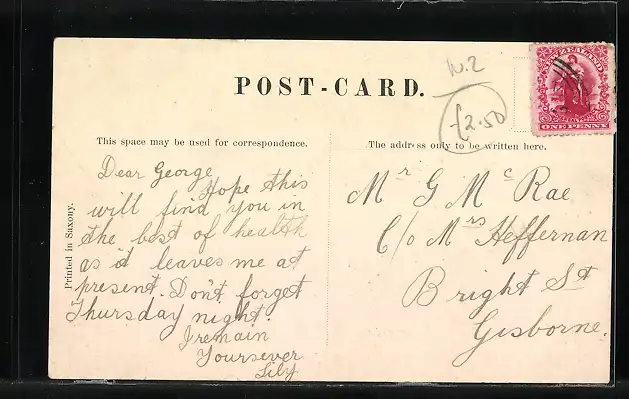 POST-CARD.
N.2
£2.50
NEW ZEALAND
ONE PENNY
This space may be used for correspondence.
The address only to be written here.
Printed in Saxony.
Dear George
Hope this
will find you in
the best of health
as it leaves me at
present. Don't forget
Thursday night.
I remain
Yours ever
Lily
Mr G McRae
C/o Mrs Heffernan
Bright St
Gisborne.